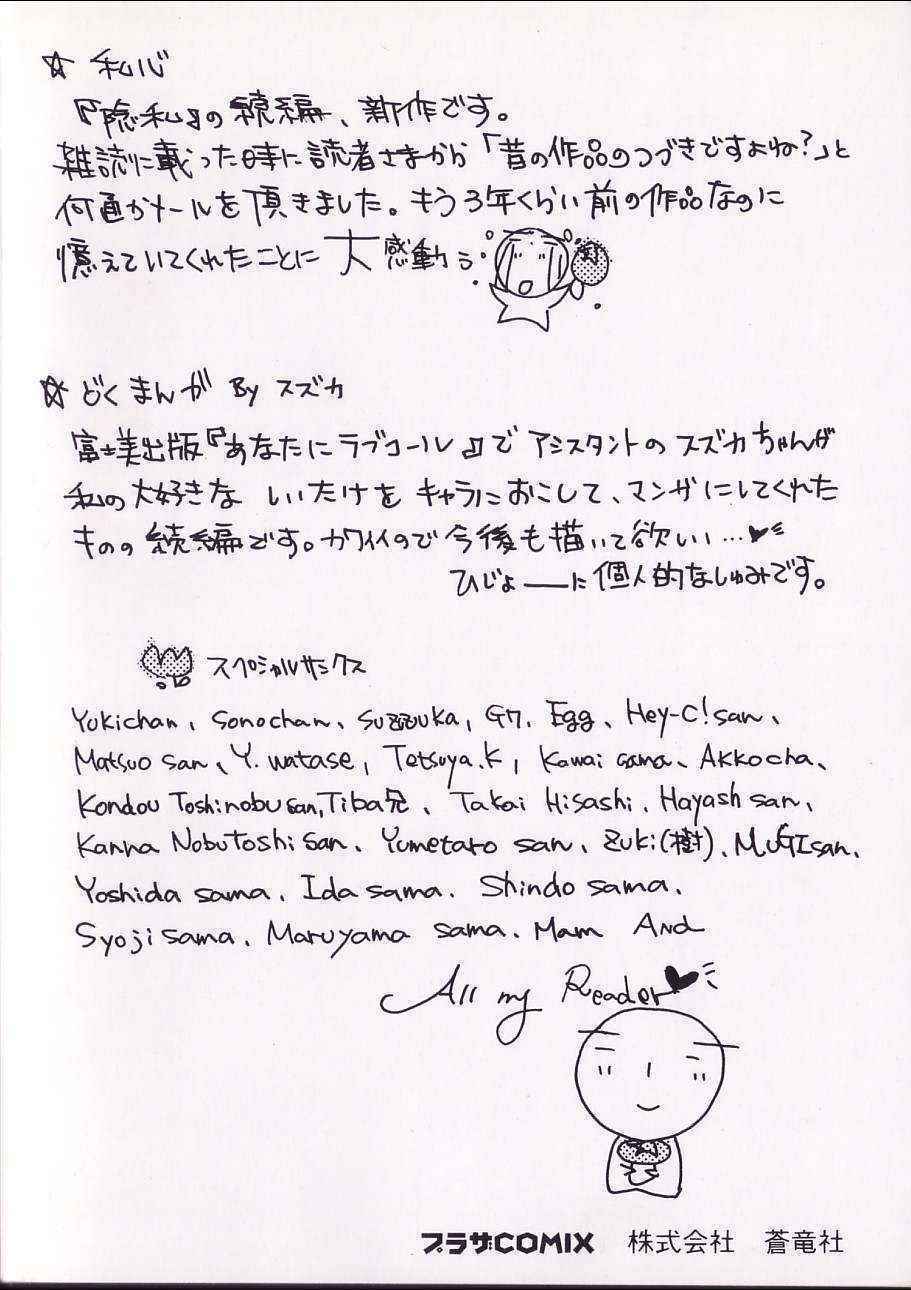 ☆ 私心
『隠私』の続編、新作です。
雑読に載った時に読者さまから「昔の作品のつづきですよね?」と
何通かメールを頂きました。もう3年くらい前の作品なのに
憶えていてくれたことに 大感動
☆ どくまんが By スズカ
富士美出版『あなたにラブコール』で アシスタントの スズカちゃんが
私の大好きな しいたけを キャラにおこして、マンガにしてくれた
ものの 続編です。カワイイので 今後も描いて欲しい…♥
ひじょーーに 個人的なしゅみです。
スペシャルサンクス
Yukichan、Sonochan、Suzuzuka, G7, Egg、Hey-C! san、
Matsuo san、Y. watase, Tetsuya.K, Kawai sama、Akkocha、
Kondou Toshinobu san, Tiba兄、Takai Hisashi、Hayash san、
Kanna Nobutoshi san、Yumetaro san、Zuki(樹)、MUGI san、
Yoshida sama、Ida sama、Shindo sama、
Syoji sama、Maruyama sama、Mam And
All my Reader♥
プラザCOMIX 株式会社 蒼竜社